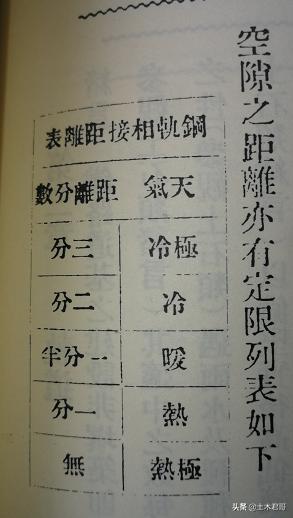 空隙之距離亦有定限列表如下
鋼軌相接距離表
天氣 距離分數
極冷 三分
冷 二分
暖 一分半
熱 一分
極熱 無
头条 @土木君哥